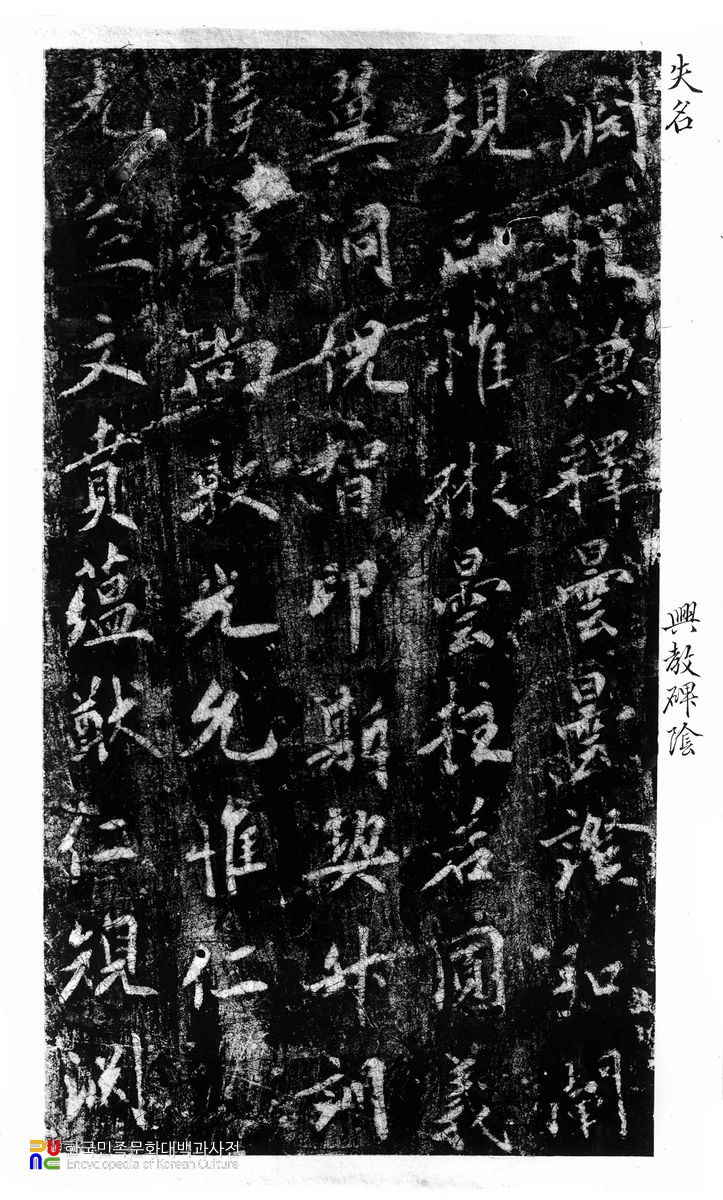 失名
興教碑陰
淵謙釋曇曇證和
規正惟彬曇柱若圓義
冀洞俔智印斯契升
時禪尚敦光允惟仁
文賁蘊猷仁規淵
한국민족문화대백과사전
Encyclopedia of Korean Culture